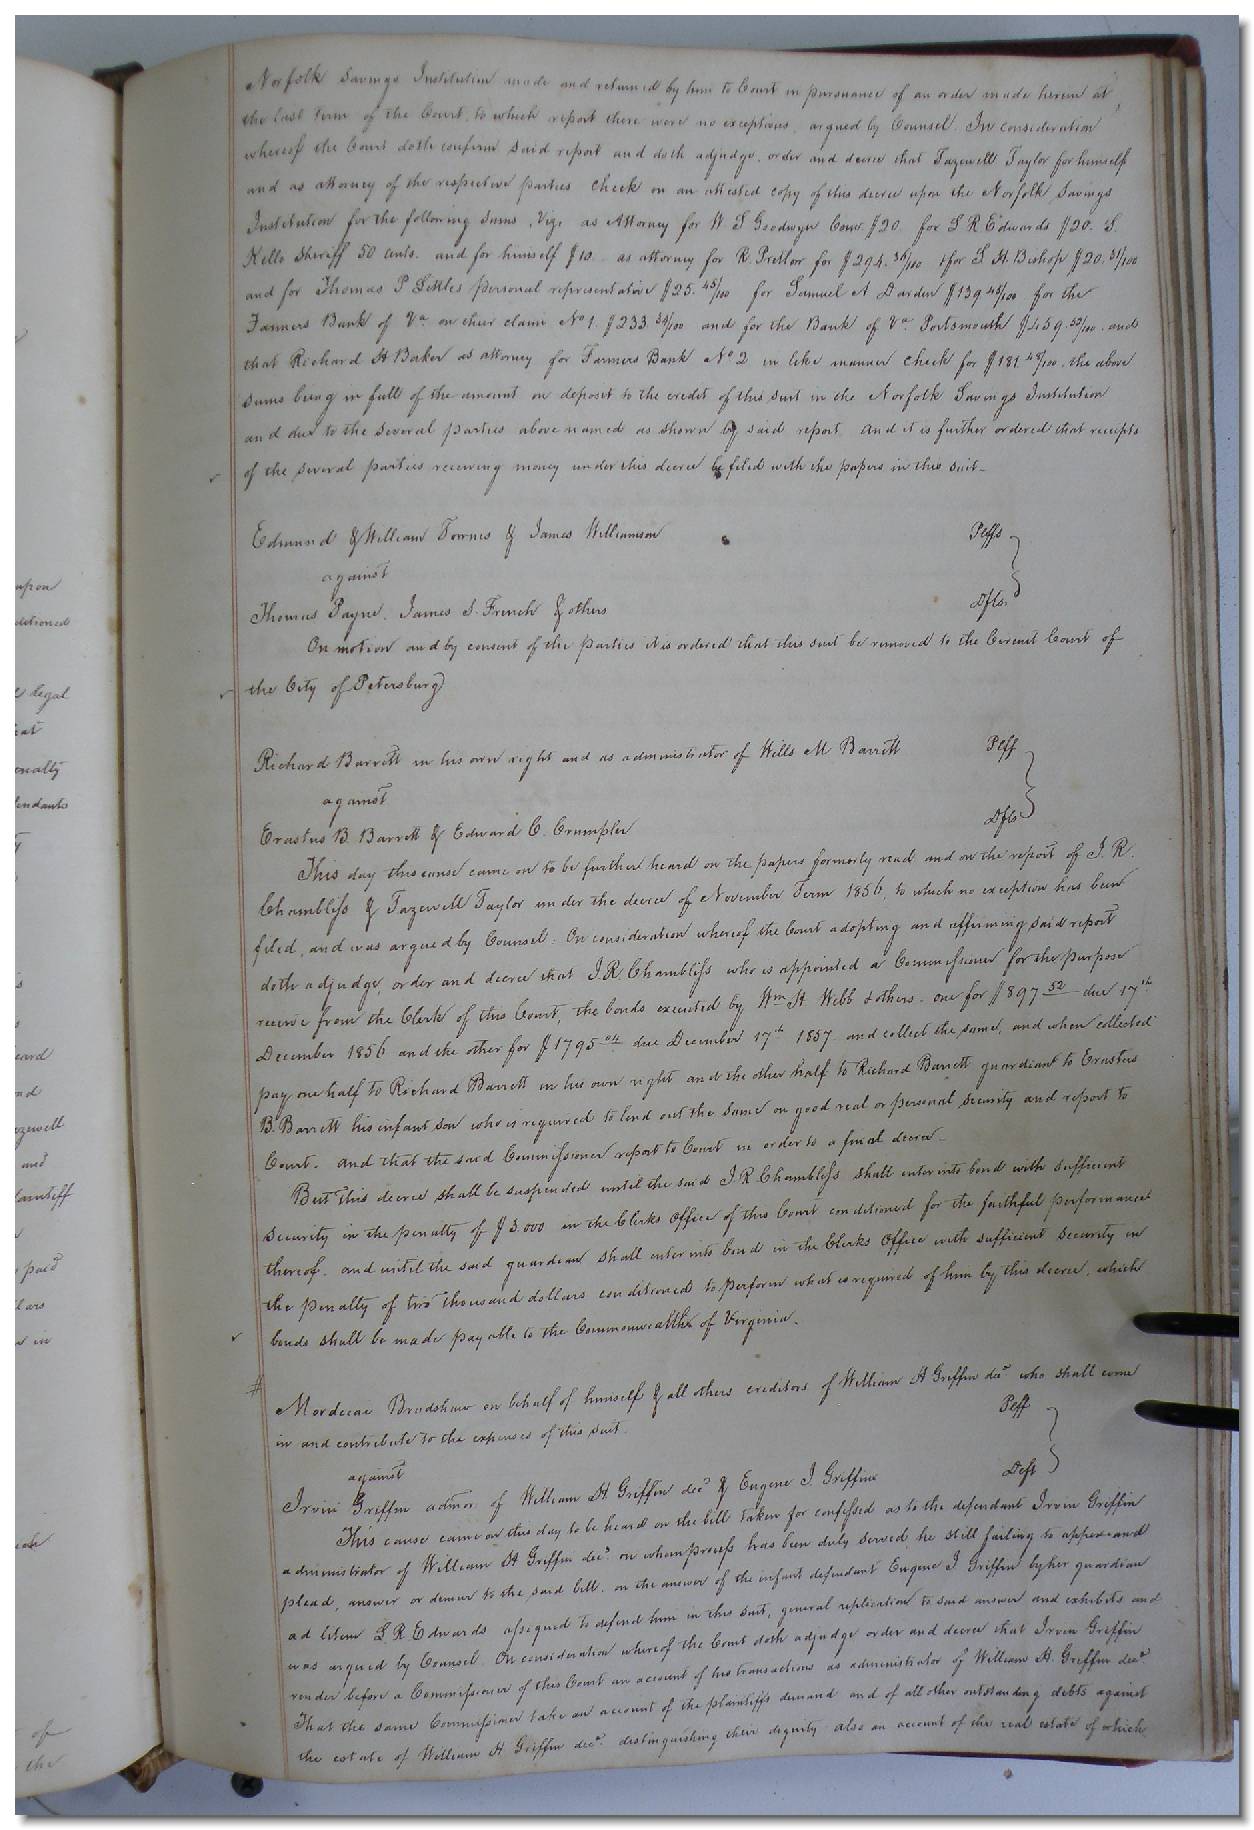 Norfolk Savings Institution made and returned by him to Court in pursuance of an order made herein at
the last Term of the Court, to which report there were no exceptions, argued by Counsel. In consideration
whereof the Court doth confirm said report and doth adjudge, order and decree that Tazewell Taylor for himself
and as attorney of the respective parties check on an attested copy of this decree upon the Norfolk Savings
Institution for the following sums, Viz, as Attorney for W. S Goodwyn Comr. $20. for L R Edwards $20. S.
Kello Sheriff 50 cents. and for himself $10. as attorney for R. Pretlor for $294.36/100 for S H Bishop $20.31/100
and for Thomas P Settles personal representative $25.45/100 for Samuel A Darden $139 45/100 for the
Farmers Bank of Va. on their claim No 1. $233. 34/100 and for the Bank of Va. Portsmouth $459.52/100. and
that Richard H Baker as attorney for Farmers Bank No 2 in like manner check for $181 48/100. the above
sums being in full of the amount on deposit to the credit of this suit in the Norfolk Savings Institution
and due to the several parties above named as shown by said report. And it is further ordered that receipts
of the several parties receiving money under this decree be filed with the papers in this suit-
Edmund & William Townes & James Williamson Plffs
against
Thomas Payne. James S. French & others Dfts.
On motion and by consent of the parties it is ordered that this suit be removed to the Circuit Court of
the City of Petersburg
Richard Barrett in his own right and as administrator of Wills M Barrett Plff
against
Erastus B. Barrett & Edward C. Crumpler Dfts
This day this cause came on to be further heard on the papers formerly read and on the report of J. R.
Chambliss & Tazewell Taylor under the decree of November Term 1856, to which no exception has been
filed, and was argued by Counsel. On consideration whereof the Court adopting and affirming said report
doth adjudge, order and decree that J. R Chambliss who is appointed a Commissioner for the purpose
receive from the Clerk of this Court, the bonds executed by Wm H Webb & others. one for $897 52 due 17th
December 1856 and the other for $1795 04 due December 17th 1857 and collect the same, and when collected
pay one half to Richard Barrett in his own right and the other half to Richard Barrett guardian to Erastus
B. Barrett his infant son who is required to lend out the same on good real or personal security and report to
Court. and that the said Commissioner report to Court in order to a final decree-
But this decree shall be suspended until the said J. R Chambliss shall enter into bond with sufficient
security in the penalty of $3.000 in the Clerks Office of this Court conditioned for the faithful performance
thereof. and until the said guardian shall enter into bond in the Clerks Office with sufficient security in
the penalty of two thousand dollars conditioned to perform what is required of him by this decree. which
bonds shall be made payable to the Commonwealth of Virginia.
Mordecai Bradshaw on behalf of himself & all others creditors of William H Griffin decd who shall come
in and contribute to the expenses of this suit. Plff
against
Irvin Griffin admor. of William H Griffin decd & Eugene J. Griffin Deft
This cause came on this day to be heard on the bill taken for confessed as to the defendant Irvin Griffin
administrator of William H Griffin decd. on whom process has been duly served, he still failing to appear and
plead, answer or demur to the said bill. on the answer of the infant defendant Eugene J Griffin by her guardian
ad litem L. R Edwards assigned to defend him in this suit, general replication to said answer and exhibits and
was argued by Counsel. On consideration whereof the Court doth adjudge order and decree that Irvin Griffin
render before a Commissioner of this Court an account of his transactions as administrator of William H. Griffin decd
That the same Commissioner take an account of the plaintiffs demand and of all other outstanding debts against
the estate of William H. Griffin decd. distinguishing their dignity also an account of the real estate of which